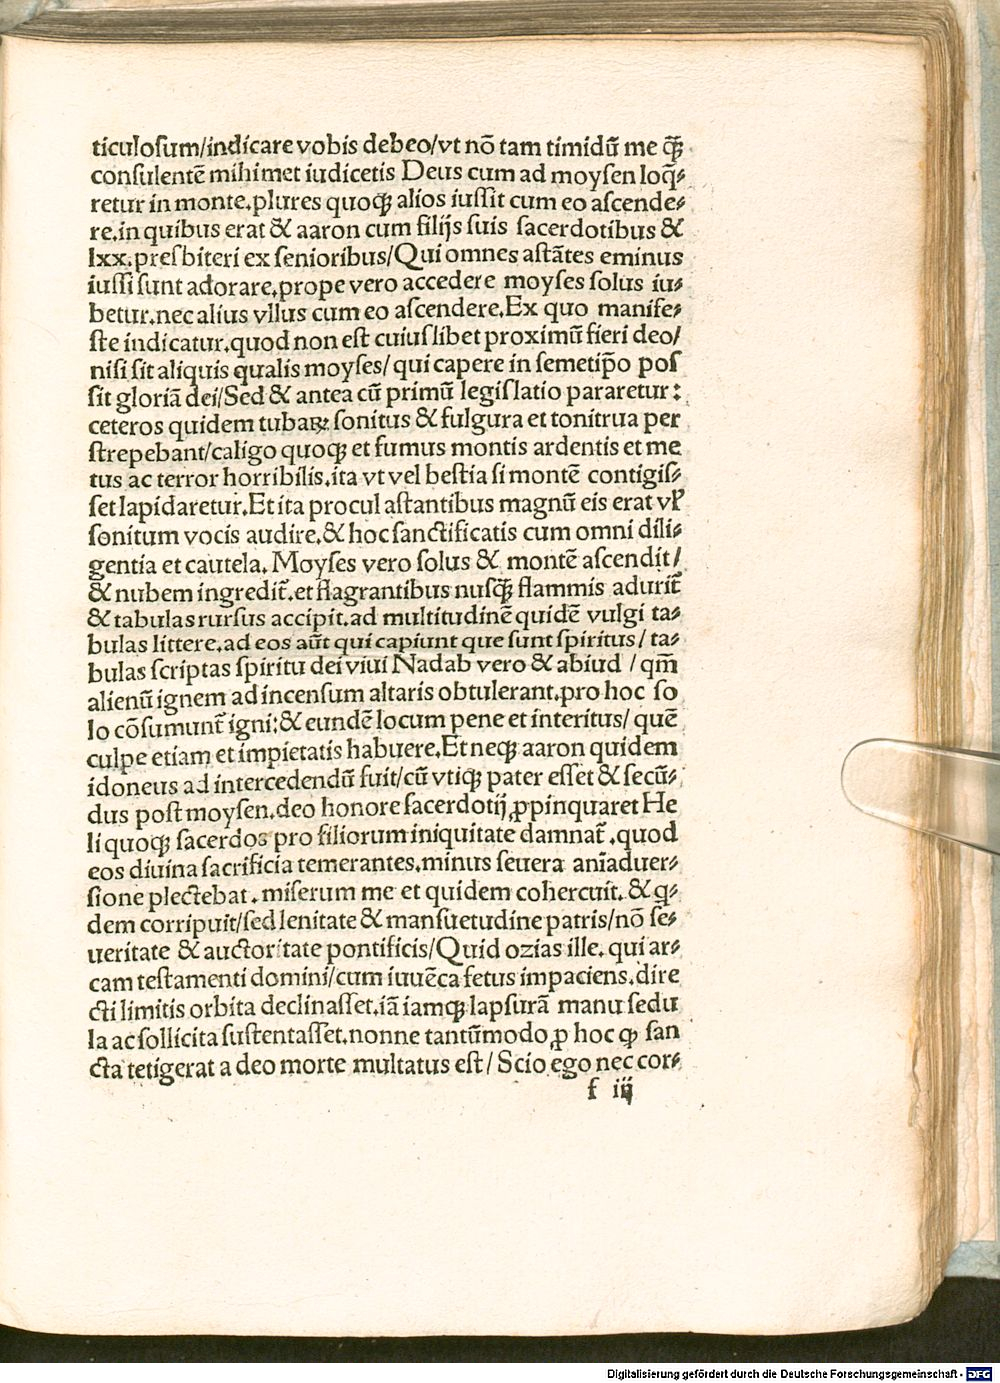 ticulosum/indicare vobis debeo/vt nō tam timidū me q̄ꝫ
consulentē mihimet iudicetis Deus cum ad moysen loq̄⸗
retur in monte.plures quoqꝫ alios iussit cum eo ascende⸗
re.in quibus erat & aaron cum filijs suis sacerdotibus &
lxx.presbiteri ex senioribus/Qui omnes astātes eminus
iussi sunt adorare.prope vero accedere moyses solus iu⸗
betur.nec alius vllus cum eo ascendere.Ex quo manife⸗
ste indicatur.quod non est cuiuslibet proximū fieri deo/
nisi sit aliquis qualis moyses/ qui capere in semetip̄o pos
sit gloriā dei/Sed & antea cū primū legislatio pararetur:
ceteros quidem tubaꝝ sonitus & fulgura et tonitrua per
strepebant/caligo quoqꝫ et fumus montis ardentis et me
tus ac terror horribilis.ita vt vel bestia si montē contigis⸗
set lapidaretur.Et ita procul astantibus magnū eis erat vl̓
sonitum vocis audire.& hoc sanctificatis cum omni dili⸗
gentia et cautela. Moyses vero solus & montē ascendit/
& nubem ingredit̄.et flagrantibus nusq̄ꝫ flammis adurit̄
& tabulas rursus accipit.ad multitudinē quidē vulgi ta⸗
bulas littere.ad eos aūt qui capiunt que sunt spiritus/ ta⸗
bulas scriptas spiritu dei viui Nadab vero & abiud / qm̄
alienū ignem ad incensum altaris obtulerant.pro hoc so
lo cōsumunt̄ igni:& eundē locum pene et interitus/ quē
culpe etiam et impietatis habuere.Et neqꝫ aaron quidem
idoneus ad intercedendū fuit/cū vtiqꝫ pater esset & secū⸗
dus post moysen.deo honore sacerdotij ꝓpinquaret He
li quoqꝫ sacerdos pro filiorum iniquitate damnat̄ .quod
eos diuina sacrificia temerantes.minus seuera anīaduer⸗
sione plectebat. miserum me et quidem cohercuit. & q̇⸗
dem corripuit/sed lenitate & mansuetudine patris/nō se⸗
ueritate & auctoritate pontificis/Quid ozias ille. qui ar⸗
cam testamenti domini/cum iuuēca fetus impaciens.dire
cti limitis orbita declinasset.iā iamqꝫ lapsurā manu sedu
la ac sollicita sustentasset.nonne tantūmodo ꝑ hoc ꝙ san
cta tetigerat a deo morte multatus est/ Scio ego nec cor⸗
f iij
Digitalisierung gefördert durch die Deutsche Forschungsgemeinschaft - DFG